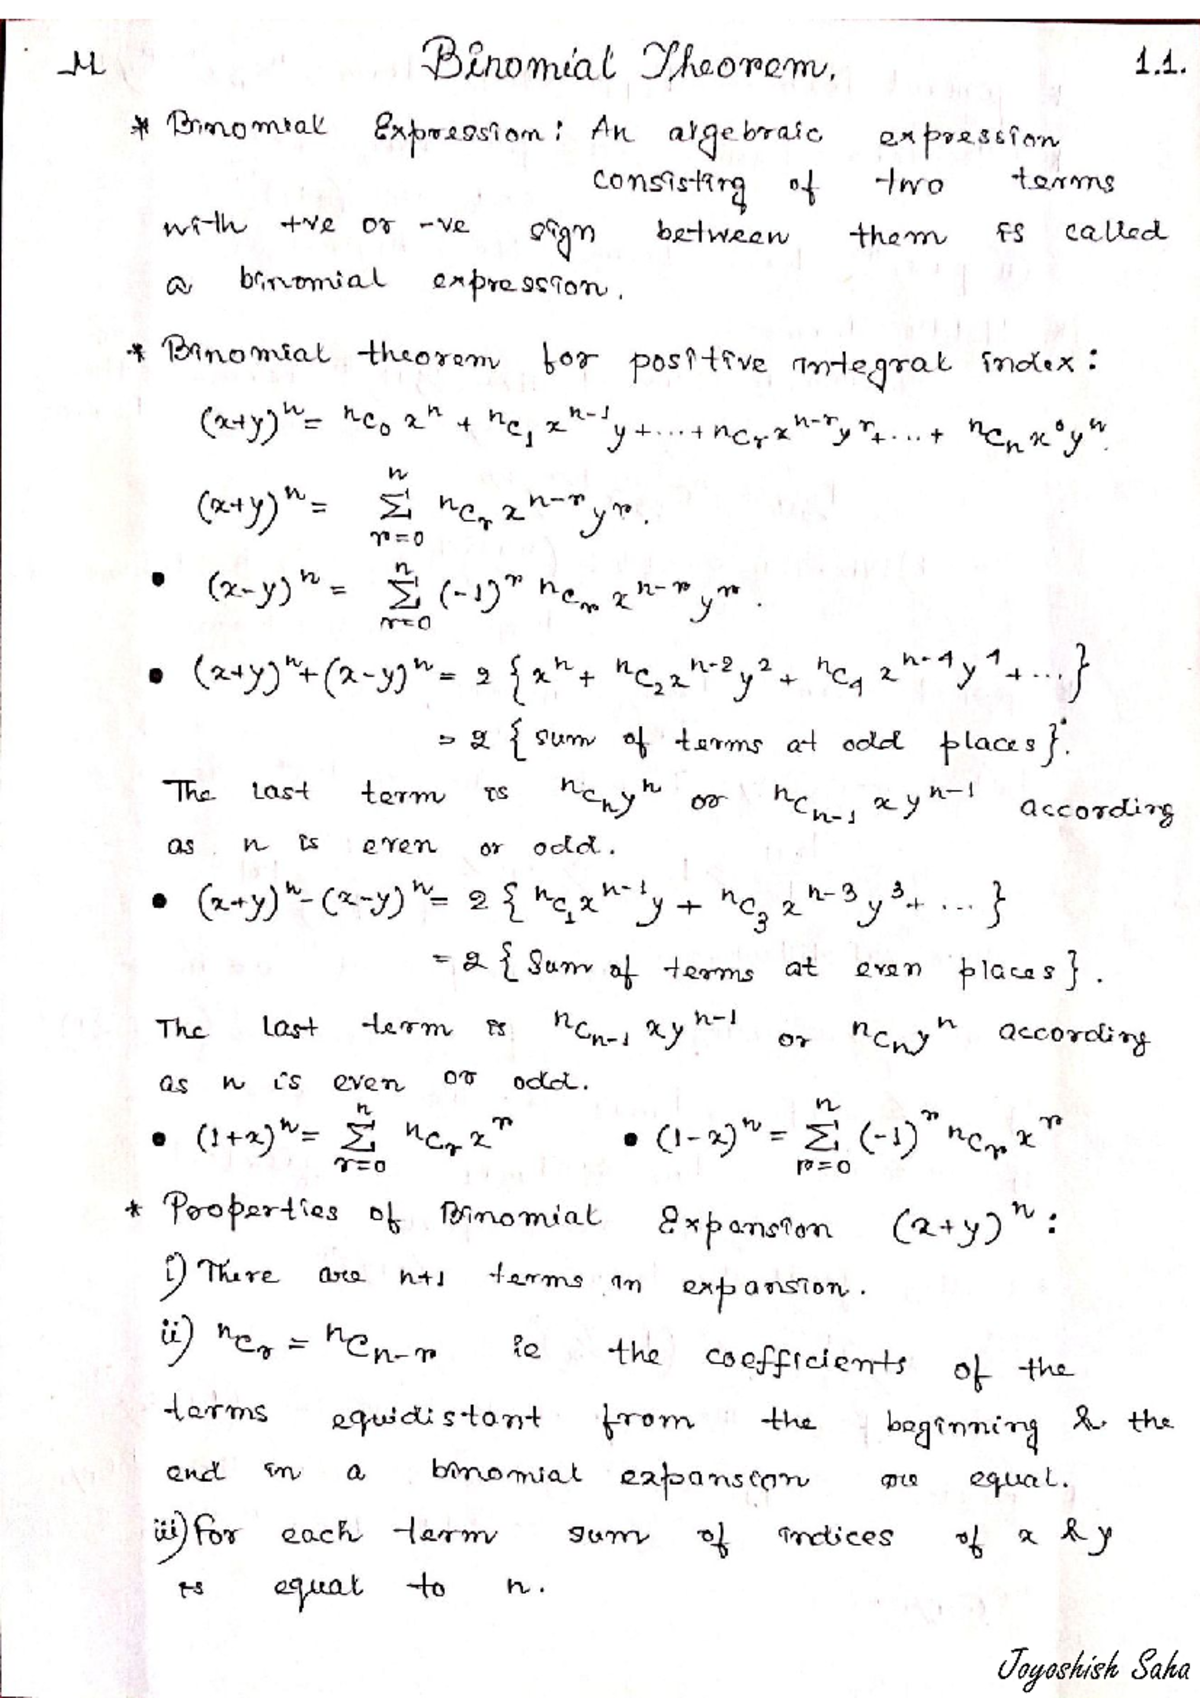 M Binomial Theorem. 1.1.
* Binomial Expression: An algebraic expression
consisting of two terms
with +ve or -ve sign between them is called
a binomial expression.
* Binomial theorem for positive integral index:
(x+y)ⁿ = ⁿC₀ xⁿ + ⁿC₁ xⁿ⁻¹y + ... + ⁿCᵣ xⁿ⁻ʳ yʳ + ... + ⁿCₙ x⁰yⁿ.
(x+y)ⁿ = Σ_{r=0}^{n} ⁿCᵣ xⁿ⁻ʳ yʳ.
• (x-y)ⁿ = Σ_{r=0}^{n} (-1)ʳ ⁿCᵣ xⁿ⁻ʳ yʳ.
• (x+y)ⁿ + (x-y)ⁿ = 2 { xⁿ + ⁿC₂ xⁿ⁻² y² + ⁿC₄ xⁿ⁻⁴ y⁴ + ... }
= 2 { sum of terms at odd places }.
The last term is ⁿCₙ yⁿ or ⁿCₙ₋₁ x yⁿ⁻¹ according
as n is even or odd.
• (x+y)ⁿ - (x-y)ⁿ = 2 { ⁿC₁ xⁿ⁻¹ y + ⁿC₃ xⁿ⁻³ y³ + ... }
= 2 { Sum of terms at even places }.
The last term is ⁿCₙ₋₁ xyⁿ⁻¹ or ⁿCₙ yⁿ according
as n is even or odd.
• (1+x)ⁿ = Σ_{r=0}^{n} ⁿCᵣ xʳ • (1-x)ⁿ = Σ_{r=0}^{n} (-1)ʳ ⁿCᵣ xʳ
* Properties of Binomial Expansion (x+y)ⁿ:
i) There are n+1 terms in expansion.
ii) ⁿCᵣ = ⁿCₙ₋ᵣ ie the coefficients of the
terms equidistant from the beginning & the
end in a binomial expansion are equal.
iii) For each term sum of indices of x & y
is equal to n.
Joyoshish Saha